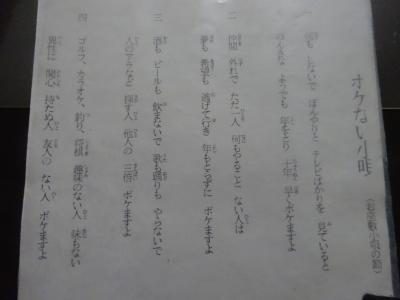 ボケない小唄
(お座敷小唄の節)
何も しないで ぼんやりと テレビばかりを 見ていると
のんきな ようでも 年をとり 十年 早くボケますよ
二 仲間 外れで ただ一人 何もやること ない人は
夢も 希望も 逃げて行き 年もとらずに ボケますよ
三 酒も ビールも 飲まないで 歌も踊りも やらないで
人のアラなど 探す人 他人の 三倍 ボケますよ
四 ゴルフ、カラオケ、釣り、将棋 趣味のない人 味もない
異性に 関心 持たぬ人 友人の ない人 ボケますよ